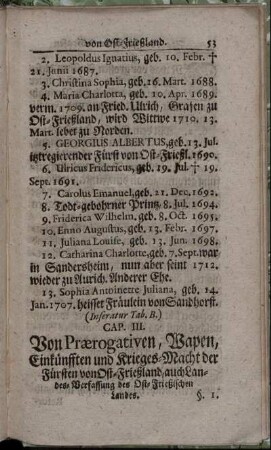 von Ost-Frießland. 53
2. Leopoldus Ignatius, geb. 10. Febr. †
21. Junii 1687.
3. Christina Sophia, geb. 16. Mart. 1688.
4. Maria Charlotta, geb. 10. Apr. 1689.
verm. 1709. an Fried. Ulrich, Grafen zu
Ost-Frießland, wird Wittwe 1710. 13.
Mart. lebet zu Norden.
5. GEORGIUS ALBERTUS, geb. 13. Jul.
jetztregierender Fürst von Ost-Frießl. 1690.
6. Ulricus Fridericus, geb. 19. Jul. † 19.
Sept. 1691.
7. Carolus Emanuel, geb. 21. Dec. 1692.
8. Todt-gebohrner Printz, 8. Jul. 1694.
9. Friderica Wilhelm. geb. 8. Oct. 1695.
10. Enno Augustus, geb. 13. Febr. 1697.
11. Juliana Louise, geb. 13. Jun. 1698.
12. Catharina Charlotte, geb. 7. Sept. war
in Gandersheim, nun aber seint 1712.
wieder zu Aurich. Anderer Ehe.
13. Sophia Antoinette Juliana, geb. 14.
Jan. 1707. heisset Fräulein von Sandhorst.
(Inseratur Tab. B.)
CAP. III.
Von Prærogativen, Wapen,
Einkünfften und Krieges-Macht der
Fürsten von Ost-Frießland, auch Lan-
des-Verfassung des Ost-Frießischen
Landes. §. 1.